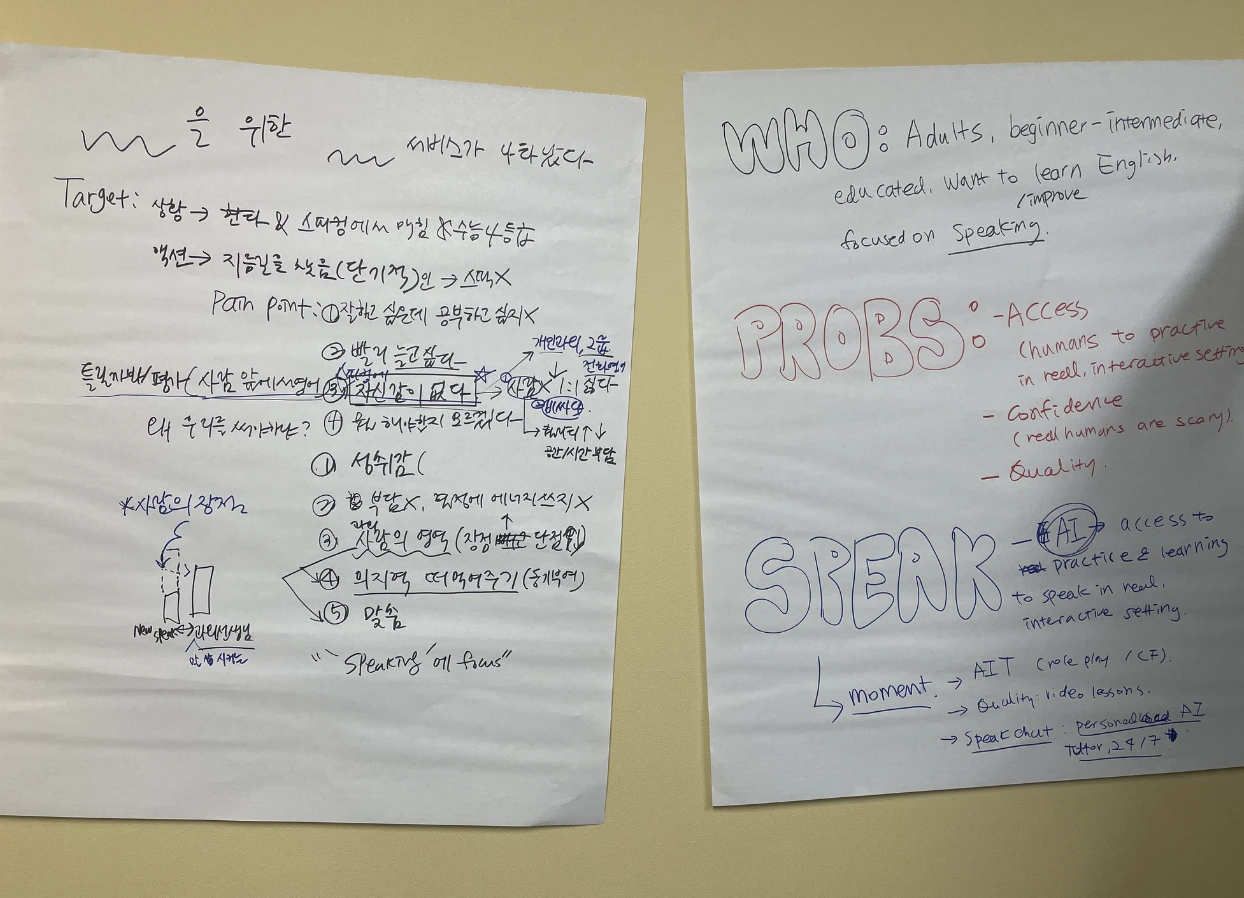 을 위한
서비스가 나타났다
Target: 상황 → 현타 & 스피킹에서 막힘 수능4등급
액션 → 지름길을 찾음 (단기적)인 → 스픽X
Pain point: ① 잘하고 싶은데 공부하고 싶지X
② 빨리 늘고싶다
틀릴까봐/평가 (사람 앞에서 영어
③ 자신감이 없다 → ① 사람X 1:1 힘들다
개인과외, 그룹
전화영어
② 비싸다.
④ 뭘 해야할지 모르겠다
공간/시간 부담
왜 우리를 써야하냐?
① 성취감 (
② 부담X, 에너지쓰지X
③ 사람의 영역 (장점 단점
④ 의지력 떠먹여주기 (동기부여)
⑤ 말숨
"'Speaking'에 focus"
*사람의 장점
New speak ↔ 과외선생님
WHO: Adults, beginner-intermediate,
educated. Want to learn English.
/improve
focused on Speaking.
PROBS: - Access
(humans to practive
in real, interactive setting
- Confidence
(real humans are scary).
- Quality.
SPEAK - AI → access to
practice & learning
to speak in real,
interactive setting.
moment. → AIT (role play / CF).
→ Quality: video lessons.
→ Speak chat: personalized AI
Tuttor, 24/7